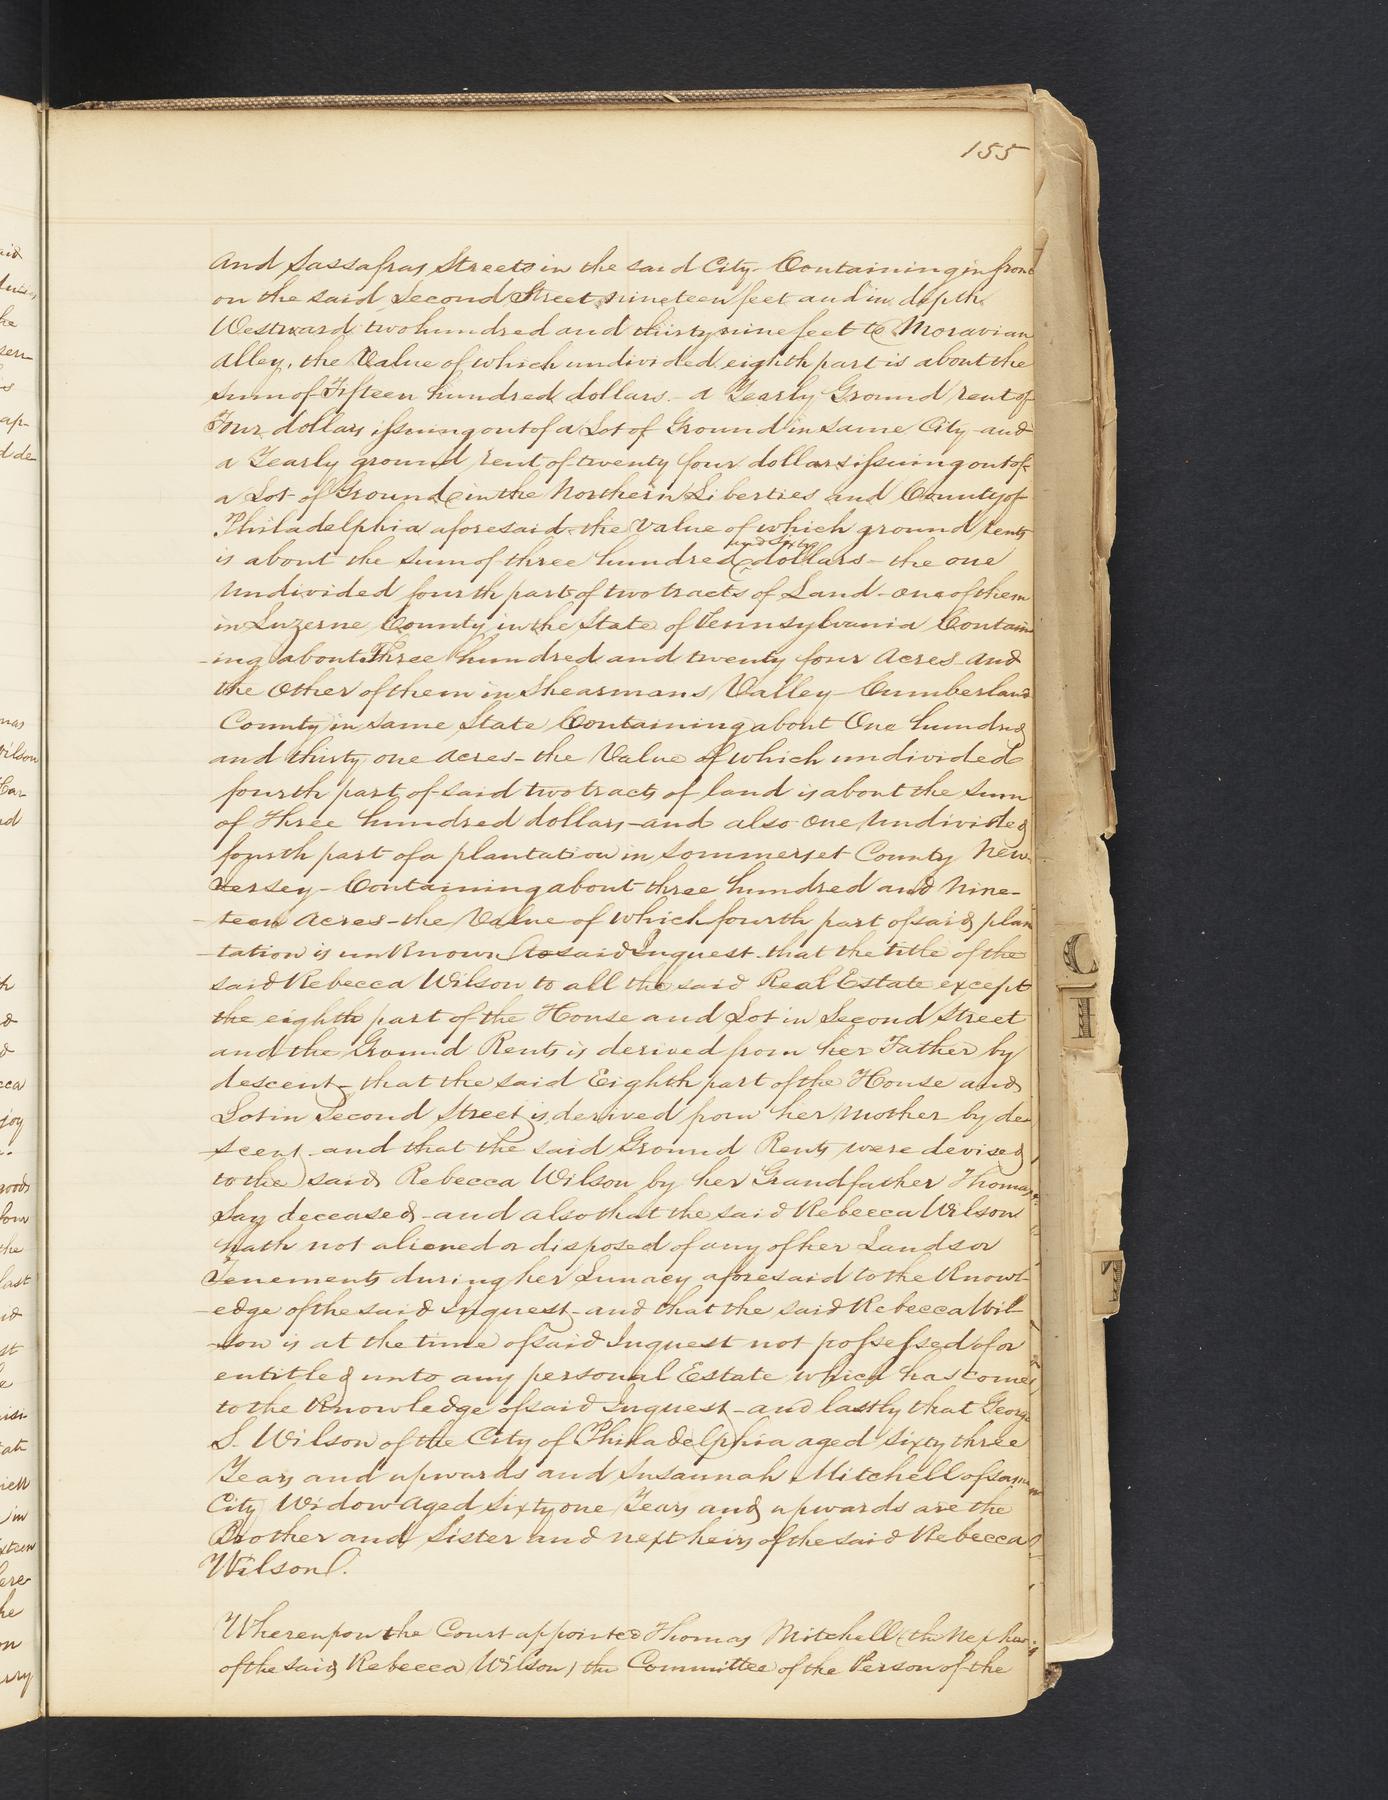 155
and Sassafras Streets in the said City - Containing in front
on the said Second Street nineteen feet and in depth
Westward two hundred and thirty nine feet to Moravian
Alley, the Value of which undivided eighth part is about the
sum of Fifteen hundred dollars - a Yearly Ground rent of
Four dollars issuing out of a Lot of Ground in same City - and
a Yearly ground rent of twenty four dollars issuing out of
a Lot of Ground in the Northern Liberties and County of
Philadelphia aforesaid - the Value of which ground Rents
is about the sum of three hundred and Sixty dollars - the one
Undivided fourth part of two tracts of Land - one of them
in Luzerne County in the State of Pennsylvania Contain
-ing about Three hundred and twenty four Acres - and
the Other of them in Shearmans Valley Cumberland
County in same State Containing about One hundred
and thirty one acres - the Value of which undivided
fourth part of said two tracts of land is about the Sum
of Three hundred dollars - and also one Undivided
fourth part of a plantation in Sommerset County New
Jersey - Containing about three hundred and Nine-
-teen Acres - the Value of which fourth part of said plan
-tation is unknown to said Inquest - that the title of the
said Rebecca Wilson to all the said Real Estate except
the eighth part of the House and Lot in Second Street
and the Ground Rents is derived from her Father by
descent - that the said Eighth part of the House and
Lot in Second Street is derived from her Mother by de
-scent and that the said Ground Rents were devised
to the said Rebecca Wilson by her Grandfather Thomas
Say deceased - and also that the said Rebecca Wilson
hath not aliened or disposed of any of her Lands or
Tenements during her Lunacy aforesaid to the Knowl-
-edge of the said Inquest - and that the said Rebecca Wil-
-son is at the time of said Inquest not possessed of or
entitled unto any personal Estate which has come
to the Knowledge of said Inquest - and lastly that George
S. Wilson of the City of Philadelphia aged sixty three
Years and upwards and Susannah Mitchell of same
City Widow Aged Sixty one Years and upwards are the
Brother and Sister and next heirs of the said Rebecca
Wilson.
Whereupon the Court appointed Thomas Mitchell (the Nephew
of the said Rebecca Wilson) the Committee of the Person of the